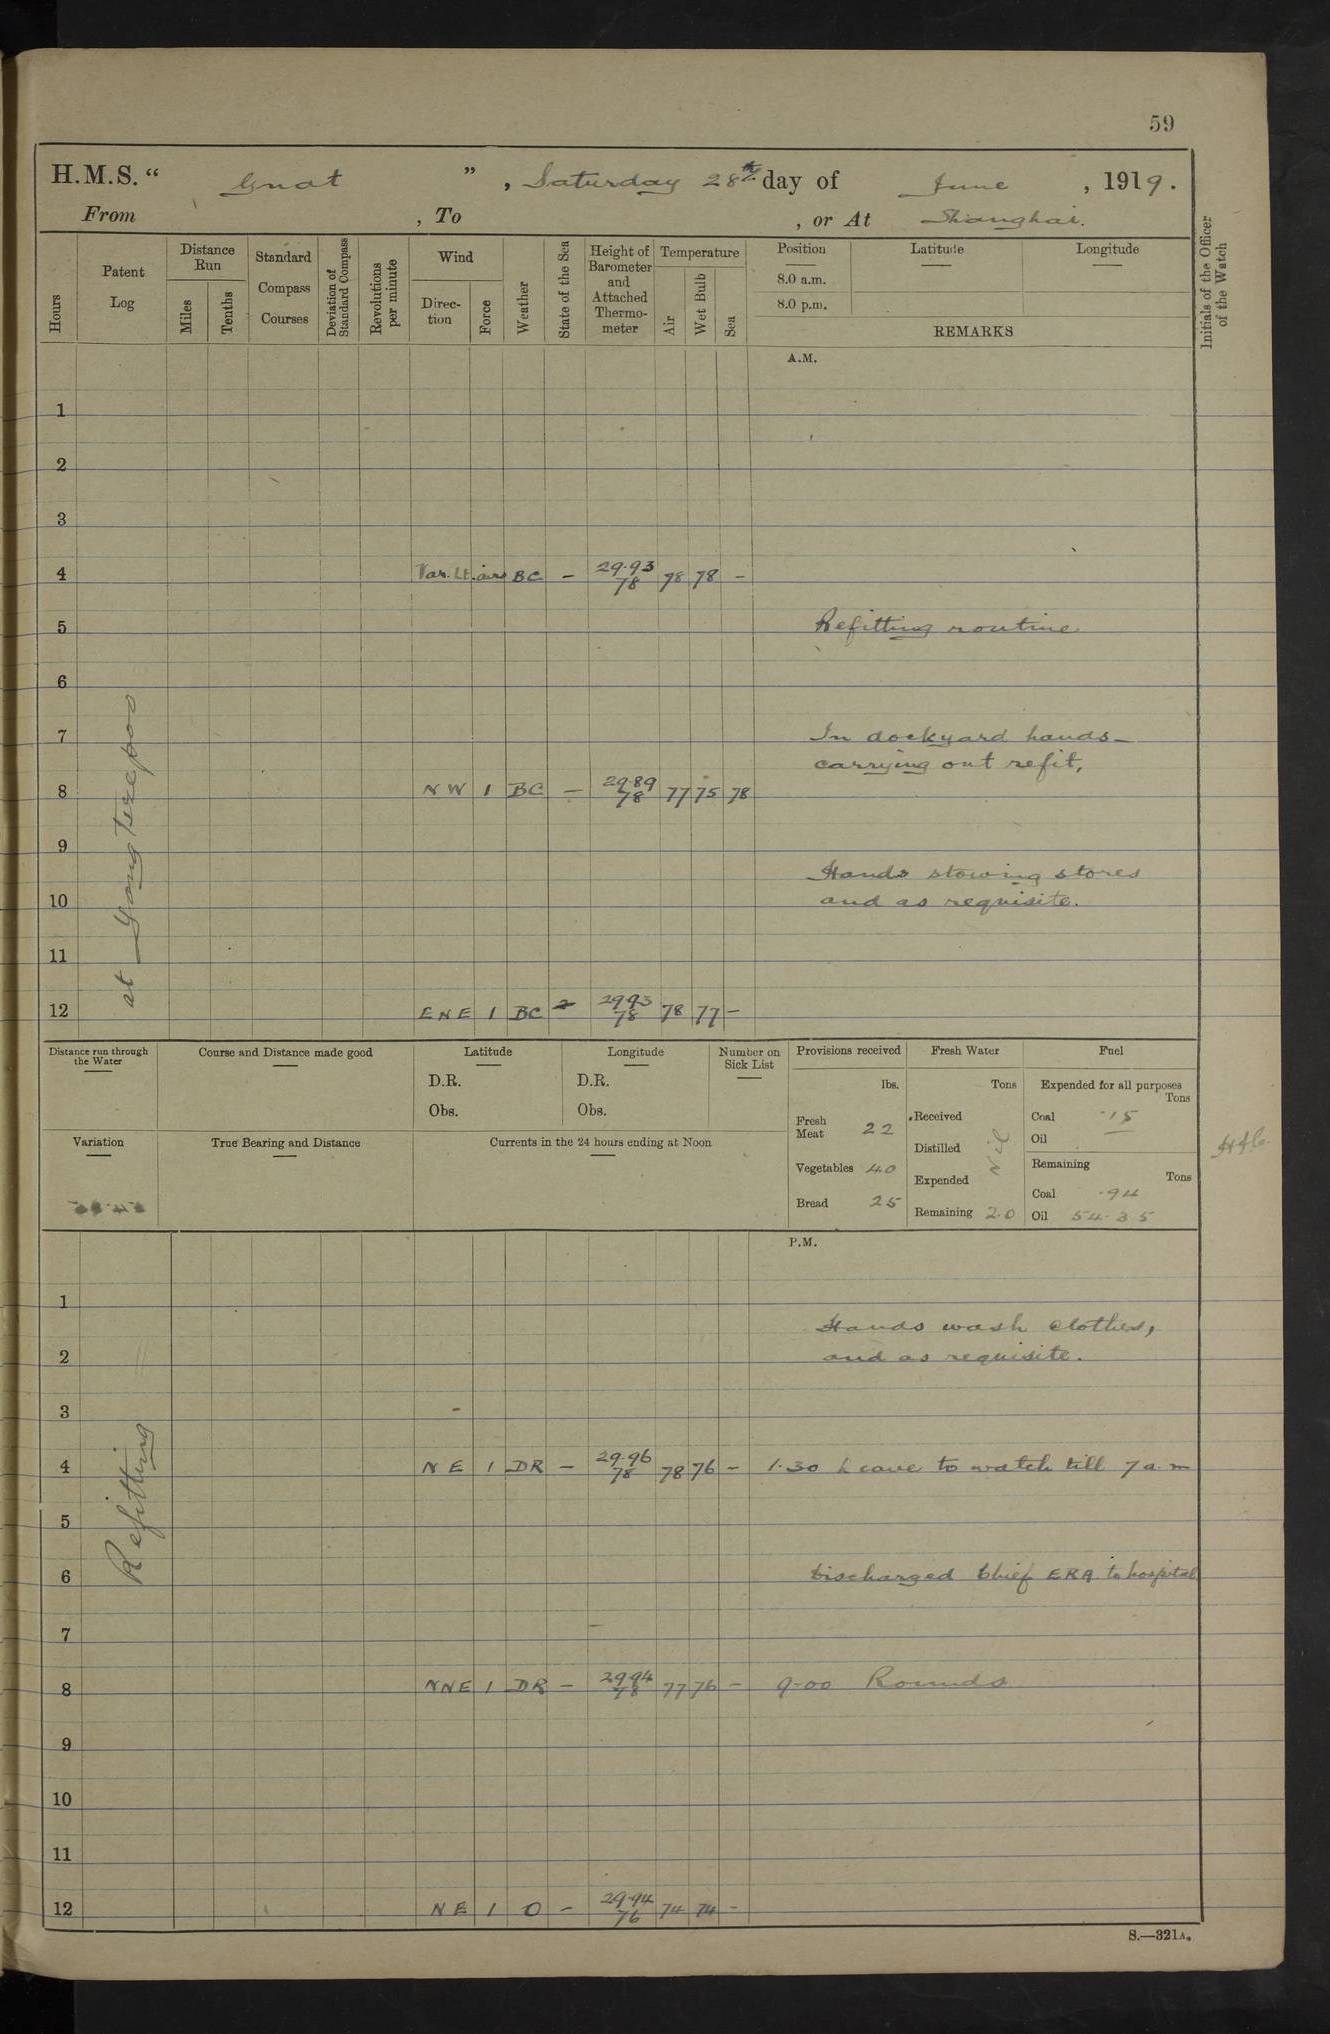 59
H.M.S. “ Gnat ” , Saturday 28th day of June , 1919.
From , To , or At Shanghai.
Hours
Patent Log
Distance Run
Miles
Tenths
Standard Compass Courses
Deviation of Standard Compass
Revolutions per minute
Wind
Direction
Force
Weather
State of the Sea
Height of Barometer and Attached Thermometer
Temperature
Air
Wet Bulb
Sea
Position
Latitude
Longitude
8.0 a.m.
8.0 p.m.
REMARKS
Initials of the Officer of the Watch
A.M.
1
2
3
4 Var. Lt. airs BC - 29.93 78 78 78 -
5 Refitting routine
6
7 In dockyard hands-
carrying out refit,
8 NW 1 BC - 29.89 78 77 75 78
9
Hands stowing stores
10 and as requisite.
11
12 ENE 1 BC 29.93 78 78 77 -
at
Distance run through the Water
Course and Distance made good
Latitude
D.R.
Obs.
Longitude
D.R.
Obs.
Number on Sick List
Variation
True Bearing and Distance
Currents in the 24 hours ending at Noon
Provisions received
lbs.
Fresh Meat 22
Vegetables 40
Bread 25
Fresh Water
Tons
Received
Distilled
Expended
Nil
Remaining 2.0
Fuel
Expended for all purposes
Tons
Coal .15
Oil —
Remaining
Tons
Coal .94
Oil 54.35
P.M.
1
Hands wash clothes,
2 and as requisite.
3
4 NE 1 DR - 29.96 78 78 76 - 1.30 Leave to watch till 7 a.m
5
6 Discharged Chief ERA to hospital
7
8 NNE 1 DR - 29.94 78 77 76 - 9.00 Rounds
9
10
11
12 NE 1 O - 29.94 76 74 74 -
Refitting
S.—321A.